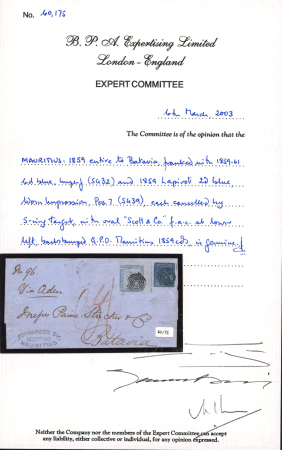 No. 60,175
B. P. A. Expertising Limited
London - England
EXPERT COMMITTEE
6th March, 2003
The Committee is of the opinion that the
MAURITIUS: 1859 entire to Batavia, franked with 1859-61
6d blue, imperf (S432) and 1859 Lapirot 2d blue,
Worn Impression, Pos. 7 (S439), each cancelled by
5-ring target, with oval "Scott & Co." f.a.c. at lower
left, backstamped G.P.O. Mauritius 1859 cds, is genuine.
Via Aden
Batavia
MAURITIUS
Neither the Company nor the members of the Expert Committee can accept
any liability, either collective or individual, for any opinion expressed.